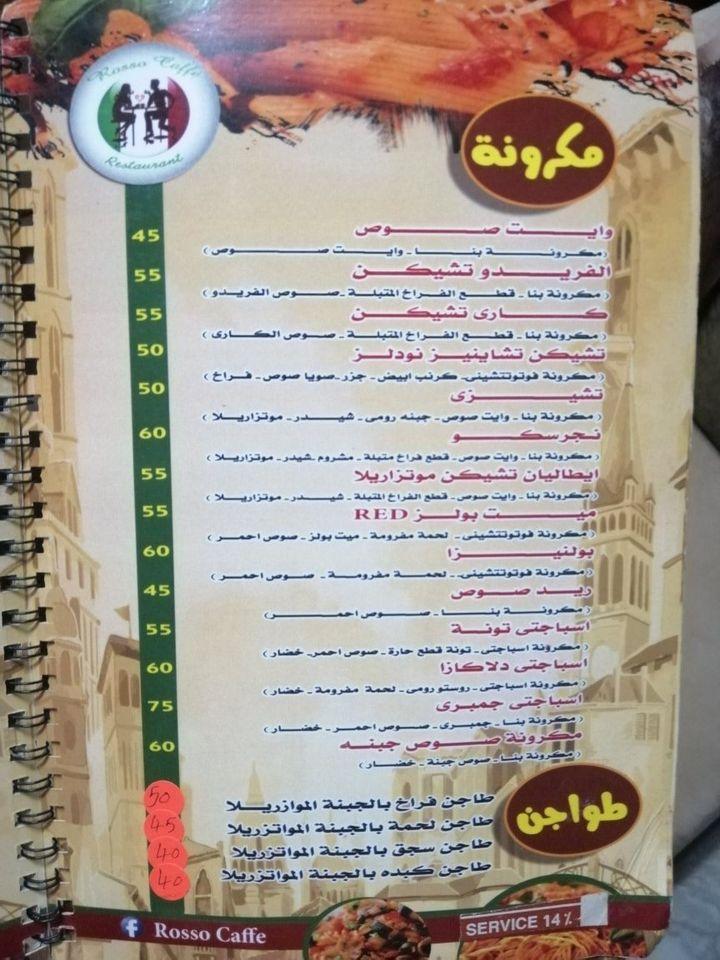 Rosso Caffe
Restaurant
مكرونة
وايت صوص 45
(مكرونة بنا - وايت صوص)
الفريدو تشيكن 55
(مكرونة بنا - قطع الفراخ المتبلة - صوص الفريدو)
كارى تشيكن 55
(مكرونة بنا - قطع الفراخ المتبلة - صوص الكارى)
تشيكن تشاينيز نودلز 50
(مكرونة فوتوتتشينى - كرنب ابيض - جزر - صويا صوص - فراخ)
تشيزى 50
(مكرونة بنا - وايت صوص - جبنه رومى - شيدر - موتزاريلا)
نجرسكو 60
(مكرونة بنا - وايت صوص - قطع فراخ متبلة - مشروم - شيدر - موتزاريلا)
ايطاليان تشيكن موتزاريلا 55
(مكرونة بنا - وايت صوص - قطع الفراخ المتبلة - شيدر - موتزاريلا)
ميت بولز RED 55
(مكرونة فوتوتتشينى - لحمة مفرومة - ميت بولز - صوص احمر)
بولنيزا 60
(مكرونة فوتوتتشينى - لحمة مفرومة - صوص احمر)
ريد صوص 45
(مكرونة بنا - صوص احمر)
اسباجتى تونة 55
(مكرونة اسباجتى - تونة قطع حارة - صوص احمر - خضار)
اسباجتى دلاكازا 60
(مكرونة اسباجتى - روستو رومى - لحمة مفرومة - خضار)
اسباجتى جمبرى 75
(مكرونة بنا - جمبرى - صوص احمر - خضار)
مكرونة صوص جبنه 60
(مكرونة بنا - صوص جبنة - خضار)
طواجن
طاجن فراخ بالجبنة الموازريلا 50
طاجن لحمة بالجبنة المواتزريلا 45
طاجن سجق بالجبنة المواتزريلا 40
طاجن كبده بالجبنة المواتزريلا 40
f Rosso Caffe
SERVICE 14٪